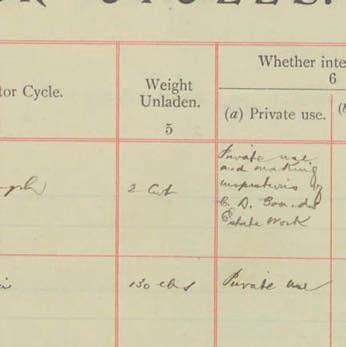 CYCLES.
Whether inte
6
tor Cycle.
Weight
Unladen.
5
(a) Private use.
Private use
and making
inspections of
Estate Work
2 Cwt
130 lbs
Private use